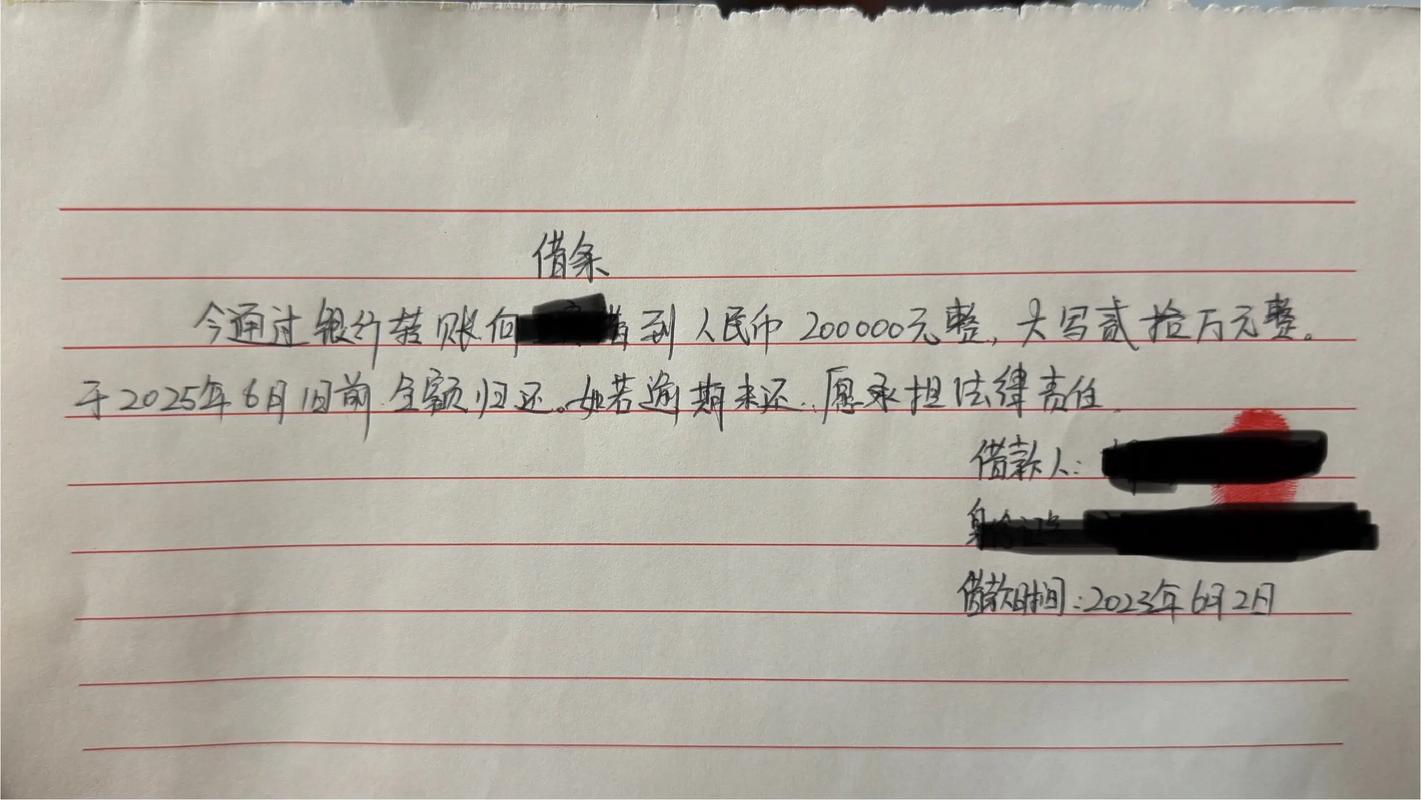 借条
今通过银行转账向 到人民币200000元整,大写贰拾万元整。
于2025年6月1日前全额归还。如若逾期未还,愿承担法律责任.
借款人:
身份证号
借款时间:2023年6月2日